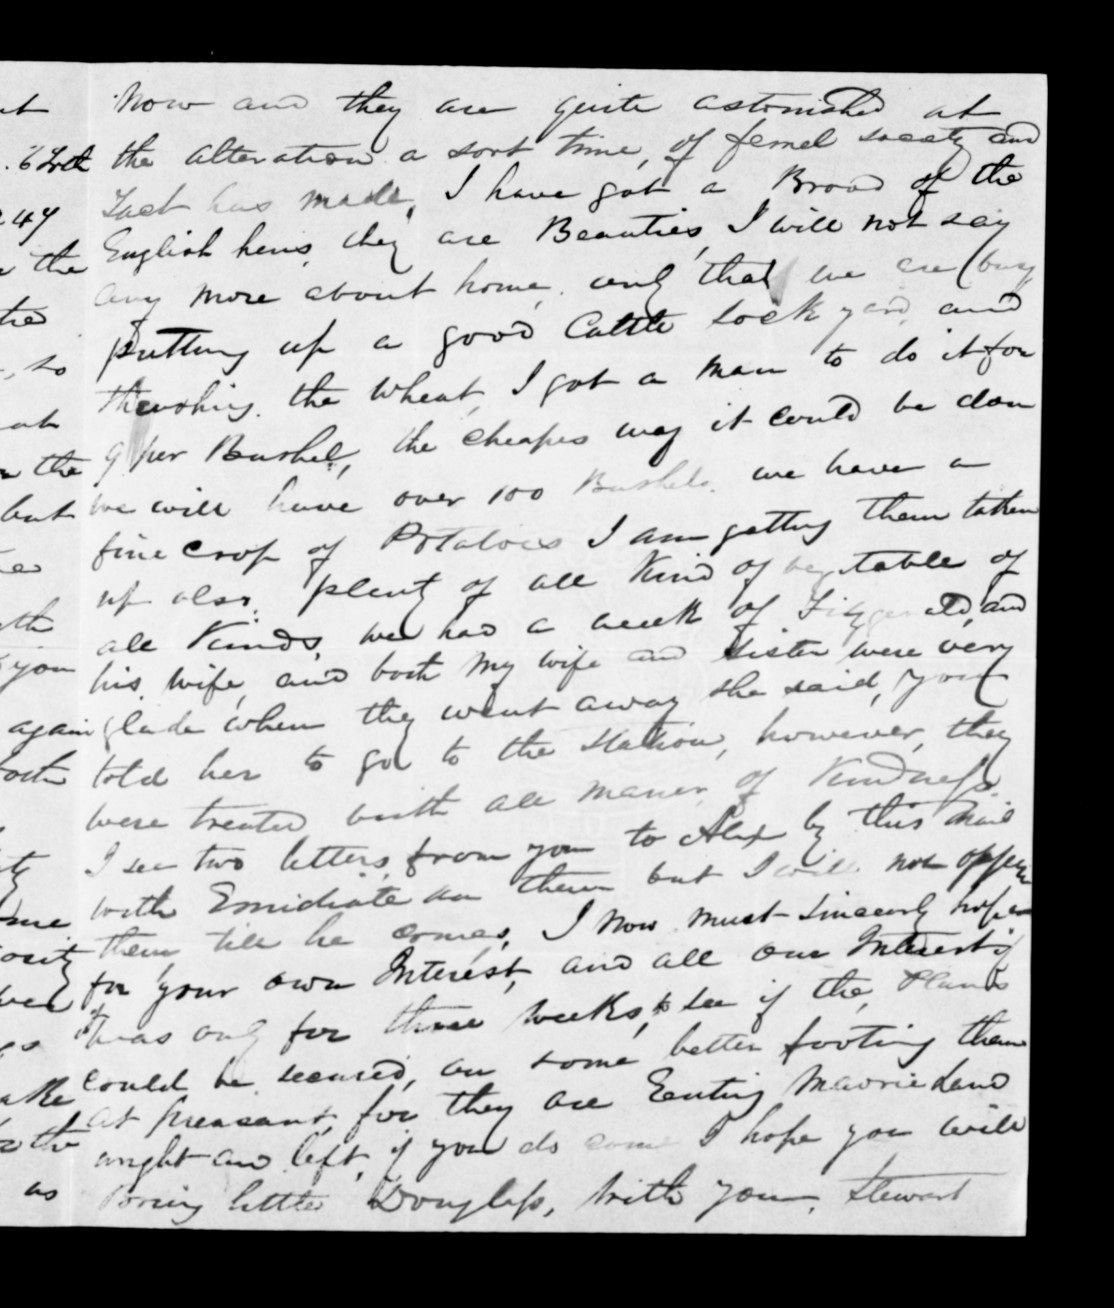 Now and they are quite astonished at
the alteration a sort time, of femel socaty and
Tact has made, I have got a Brood of the
English hens, they are Beauties, I will not say
any more about home. only that we are busy
putting up a good Cattle sock yard, and
thrashing. the Wheat, I got a man to do it for
9 per Bushel, the cheapes way it could be don
we will have over 100 Bushels. we have a
fine crop of Potatoies I am getting them taken
up also. plenty of all Kind of vegetable of
all Kinds, we had a week of Fitzgerald, and
his wife, and both my wife and Sister were very
glade when they went away she said, you
told her to go to the Station, however, they
were treated with all maner of Kindness.
I see two letters, from you to Alex by this Mail
with Emidiate on them but I will not oppen
them till he comes, I now must sincearly hope
for your own Interest, and all our Interest if
it was only for three weeks, to see if the, Plands
could be secured, on some better footing them
at preasant, for they are Renting Maorie Land
wright and left, if you do come I hope you will
Bring little Douglass, with you, Stewart
6
247
the
so
the
but
you
again
me
as